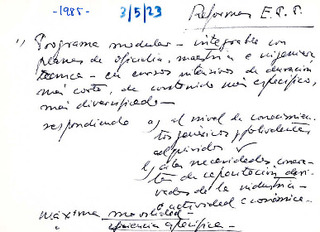 -1985- 3/5/23 Reformas E.P.P.
1) Programa modular - integrable con
planes de oficialía, maestría e ingeniería
técnica - en cursos intensivos de duración
más corta, de contenido más específico,
más diversificado -
respondiendo a) al nivel de conocimien-
tos genéricos y polivalentes
adquiridos ✓
b) a las necesidades concre-
tas de capacitación deri-
vadas de la industria -
o actividad económica -
Máxima movilidad -
" eficiencia específica -